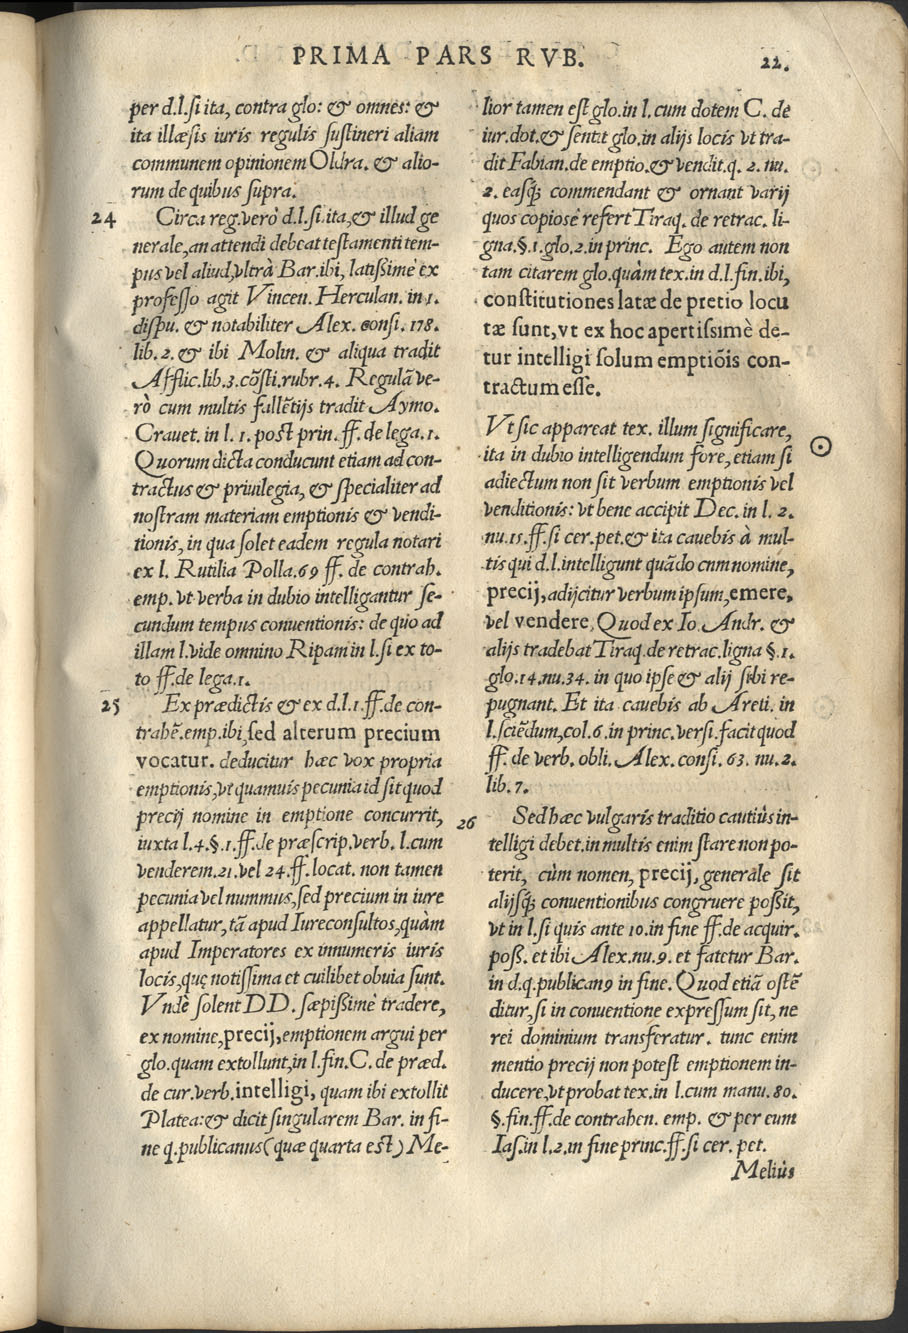 PRIMA PARS RVB.
22.
per d.l.si ita, contra glo: & omnes: &
ita illæsis iuris regulis sustineri aliam
communem opinionem Oldra. & alio-
rum de quibus supra.
24
Circa reg. verò d.l.si ita, & illud ge
nerale, an attendi debeat testamenti tem-
pus vel aliud, vltrà Bar. ibi, latissimè ex
professo agit Vincen. Herculan. in 1.
dispu. & notabiliter Alex. consi. 178.
lib. 2. & ibi Molin. & aliqua tradit
Afflic. lib. 3. cõsti. rubr. 4. Regulã ve-
rò cum multis fallẽtijs tradit Aymo.
Crauet. in l. 1. post prin. ff. de lega. 1.
Quorum dicta conducunt etiam ad con-
tractus & priuilegia, & specialiter ad
nostram materiam emptionis & vendi-
tionis, in qua solet eadem regula notari
ex l. Rutilia Polla. 69 ff. de contrah.
emp. vt verba in dubio intelligantur se-
cundum tempus conuentionis: de quo ad
illam l. vide omnino Ripam in l. si ex to-
to ff. de lega. 1.
25
Ex prædictis & ex d.l. 1. ff. de con-
trahẽ. emp. ibi, sed alterum precium
vocatur. deducitur hæc vox propria
emptionis, vt quamuis pecunia id sit quod
precij nomine in emptione concurrit,
iuxta l. 4. §. 1. ff. de præscrip. verb. l. cum
venderem. 21. vel 24. ff. locat. non tamen
pecunia vel nummus, sed precium in iure
appellatur, tã apud Iureconsultos, quàm
apud Imperatores ex innumeris iuris
locis, quę notissima et cuilibet obuia sunt.
Vndè solent DD. sæpissimè tradere,
ex nomine, precij, emptionem argui per
glo. quam extollunt, in l. fin. C. de præd.
de cur. verb. intelligi, quam ibi extollit
Platea: & dicit singularem Bar. in fi-
ne q. publicanus (quæ quarta est) Me-
lior tamen est glo. in l. cum dotem C. de
iur. dot. & sentit glo. in alijs locis vt tra-
dit Fabian. de emptio. & vendit. q. 2. nu.
2. easq́; commendant & ornant varij
quos copiosè refert Tiraq. de retrac. li-
gna. §. 1. glo. 2. in princ. Ego autem non
tam citarem glo. quàm tex. in d.l. fin. ibi,
constitutiones latæ de pretio locu
tæ sunt, vt ex hoc apertissimè de-
tur intelligi solum emptiõis con-
tractum esse.
Vt sic appareat tex. illum significare,
ita in dubio intelligendum fore, etiam si
adiectum non sit verbum emptionis vel
venditionis: vt bene accipit Dec. in l. 2.
nu. 15. ff. si cer. pet. & ita cauebis à mul-
tis qui d.l. intelligunt quãdo cnm nomine,
precij, adijcitur verbum ipsum, emere,
vel vendere, Quod ex Io. Andr. &
alijs tradebat Tiraq. de retrac. ligna §. 1.
glo. 14. nu. 34. in quo ipse & alij sibi re-
pugnant. Et ita cauebis ab Areti. in
l. sciẽdum, col. 6. in princ. versi. facit quod
ff. de verb. obli. Alex. consi. 63. nu. 2.
lib. 7.
26
Sed hæc vulgaris traditio cautiùs in-
telligi debet. in multis enim stare non po-
terit, cùm nomen, precij, generale sit
alijsq́; conuentionibus congruere possit,
vt in l. si quis ante 10. in fine ff. de acquir.
poss. et ibi Alex. nu. 9. et fatetur Bar.
in d.q. publicanꝰ in fine. Quod etiã ostẽ
ditur, si in conuentione expressum sit, ne
rei dominium transferatur. tunc enim
mentio precij non potest emptionem in-
ducere, vt probat tex. in l. cum manu. 80.
§. fin. ff. de contrahen. emp. & per eum
Ias. in l. 2. in fine princ. ff. si cer. pet.
Meliùs